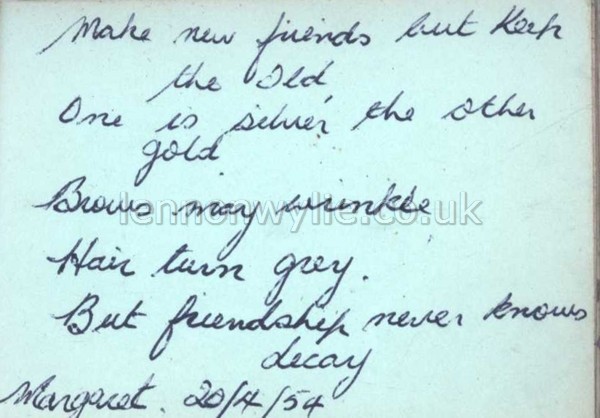 Make new friends but Keep
the Old,
One is silver the other
gold
Brows may wrinkle
lennonwylie.co.uk
Hair turn grey.
But friendship never knows
decay
Margaret. 20/4/54